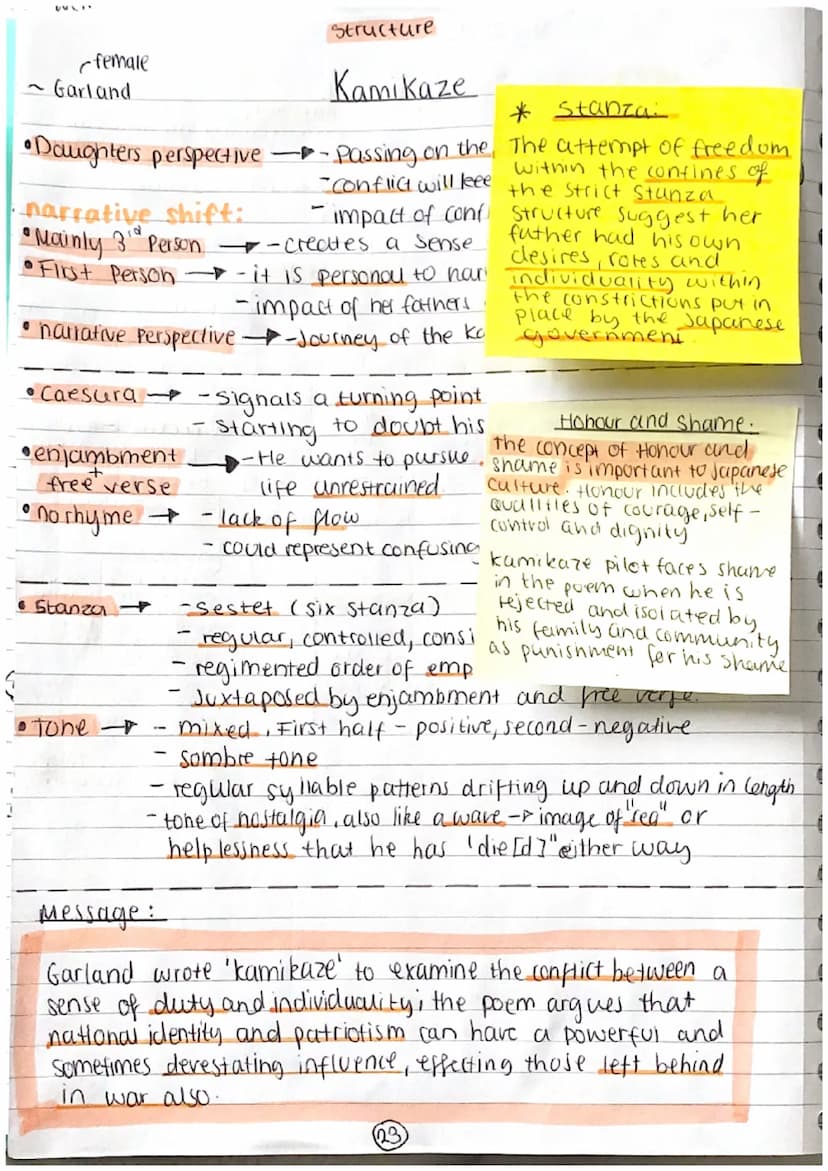 Structure
female
~ Garland
Kamikaze
• Daughters perspective → - Passing on the
- conflict will kee
- impact of conf
narrative shift:
• Mainly 3rd Person → - creates a sense
• First Person → - it is personal to nar
- impact of her fathers
• narrative Perspective → - Journey of the Ka
* Stanza:
The attempt of freedom
within the confines of
the strict stanza
structure suggest her
father had his own
desires, rotes and
individuality within
the constrictions put in
place by the Japanese
government.
• Caesura → - Signals a turning point
- starting to doubt his
• enjambment → - He wants to pursue
+
free verse life unrestrained
• no rhyme → - lack of flow
- could represent confusing
Honour and Shame:
the concept of Honour and
shame is important to Japanese
culture. Honour includes the
quallities of courage, self-
control and dignity
kamikaze pilot faces shame
in the poem when he is
rejected and isolated by
his family and community
as punishment for his shame
• Stanza → - Sestet (six stanza)
- regular, controlled, consi
- regimented order of emp
- Juxtaposed by enjambment and free verse.
• Tone → - mixed, First half - positive, second - negative
- Sombre tone
- regular syllable patterns drifting up and down in length
- tone of nostalgia, also like a wave → image of "sea" or
helplessness that he has 'die[d]" either way
Message:
Garland wrote 'kamikaze' to examine the conflict between a
sense of duty and individuality; the poem argues that
national identity and patriotism can have a powerful and
sometimes devestating influence, effecting those left behind
in war also.
23